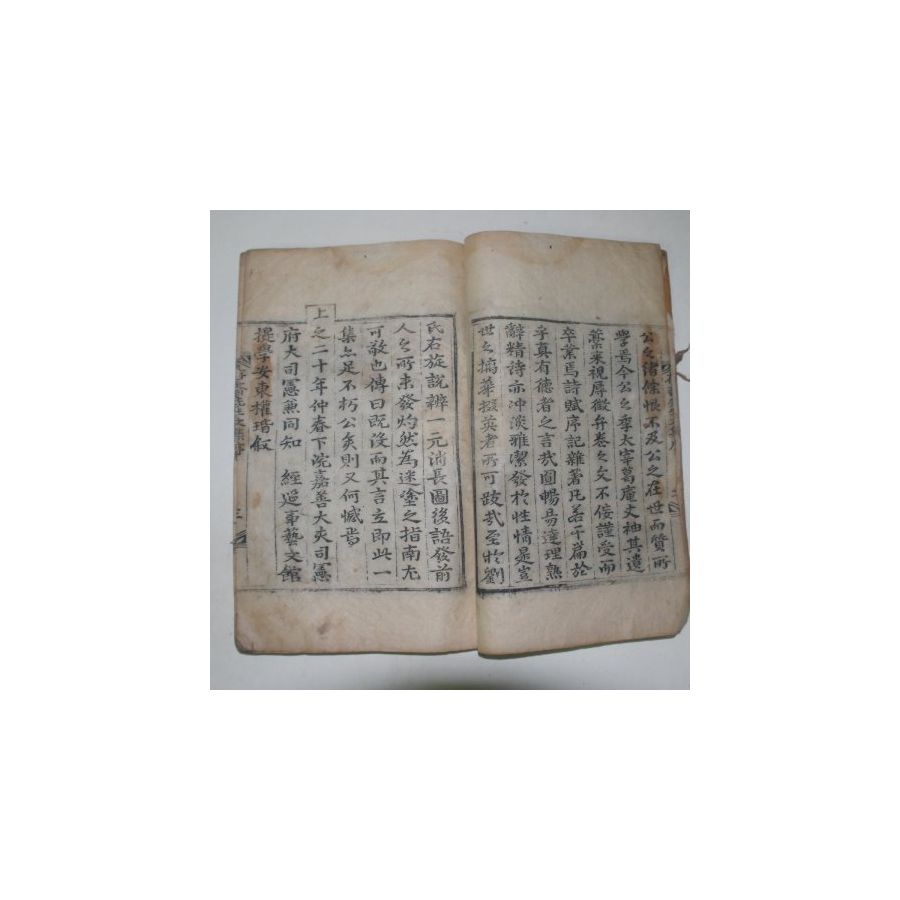 公之緖餘恨不及公之在世而質所
學焉今公之季太宰葛庵丈袖其遺
藁來視辱徵弁卷之文不佞謹受而
卒業焉詩賦序記雜著凡若干篇於
乎眞有德者之言哉圓暢易達理熟
辭精詩亦冲淡雅潔發於性情是豈
世之摛華掇英者所可跂哉至於劉
氏右旋說辨一元消長圖後語發前
人之所未發灼然為迷塗之指南尤
可敬也傳曰旣沒而其言立即此一
集亦足不朽公矣則又何憾焉
上之二十年仲春下浣嘉善大夫司憲
府大司憲兼同知 經筵事藝文館
提學安東權瑎叙